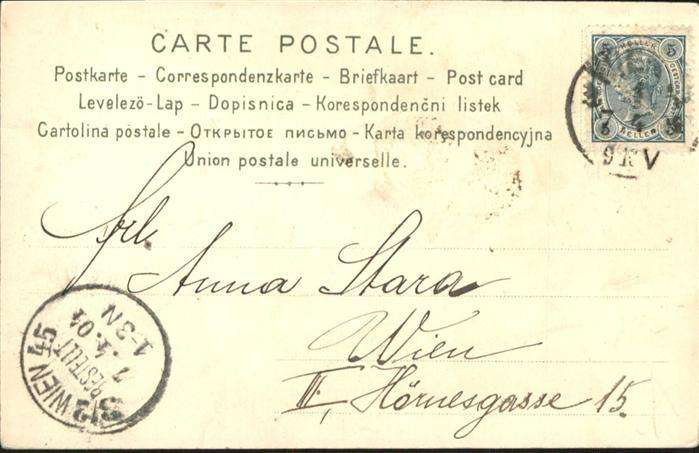 CARTE POSTALE.
Postkarte – Correspondenzkarte – Briefkaart – Post card
Levelezö-Lap – Dopisnica – Korespondenční listek
Cartolina postale – Открытое письмо – Karta korespondencyjna
Union postale universelle.
5 HELLER 5
HELLER
7
9 V
Frl.
Anna Stara
Wien
III, Hörnesgasse 15.
3/3 WIEN 45
BESTELLT
7. 4. 04
1-3 N